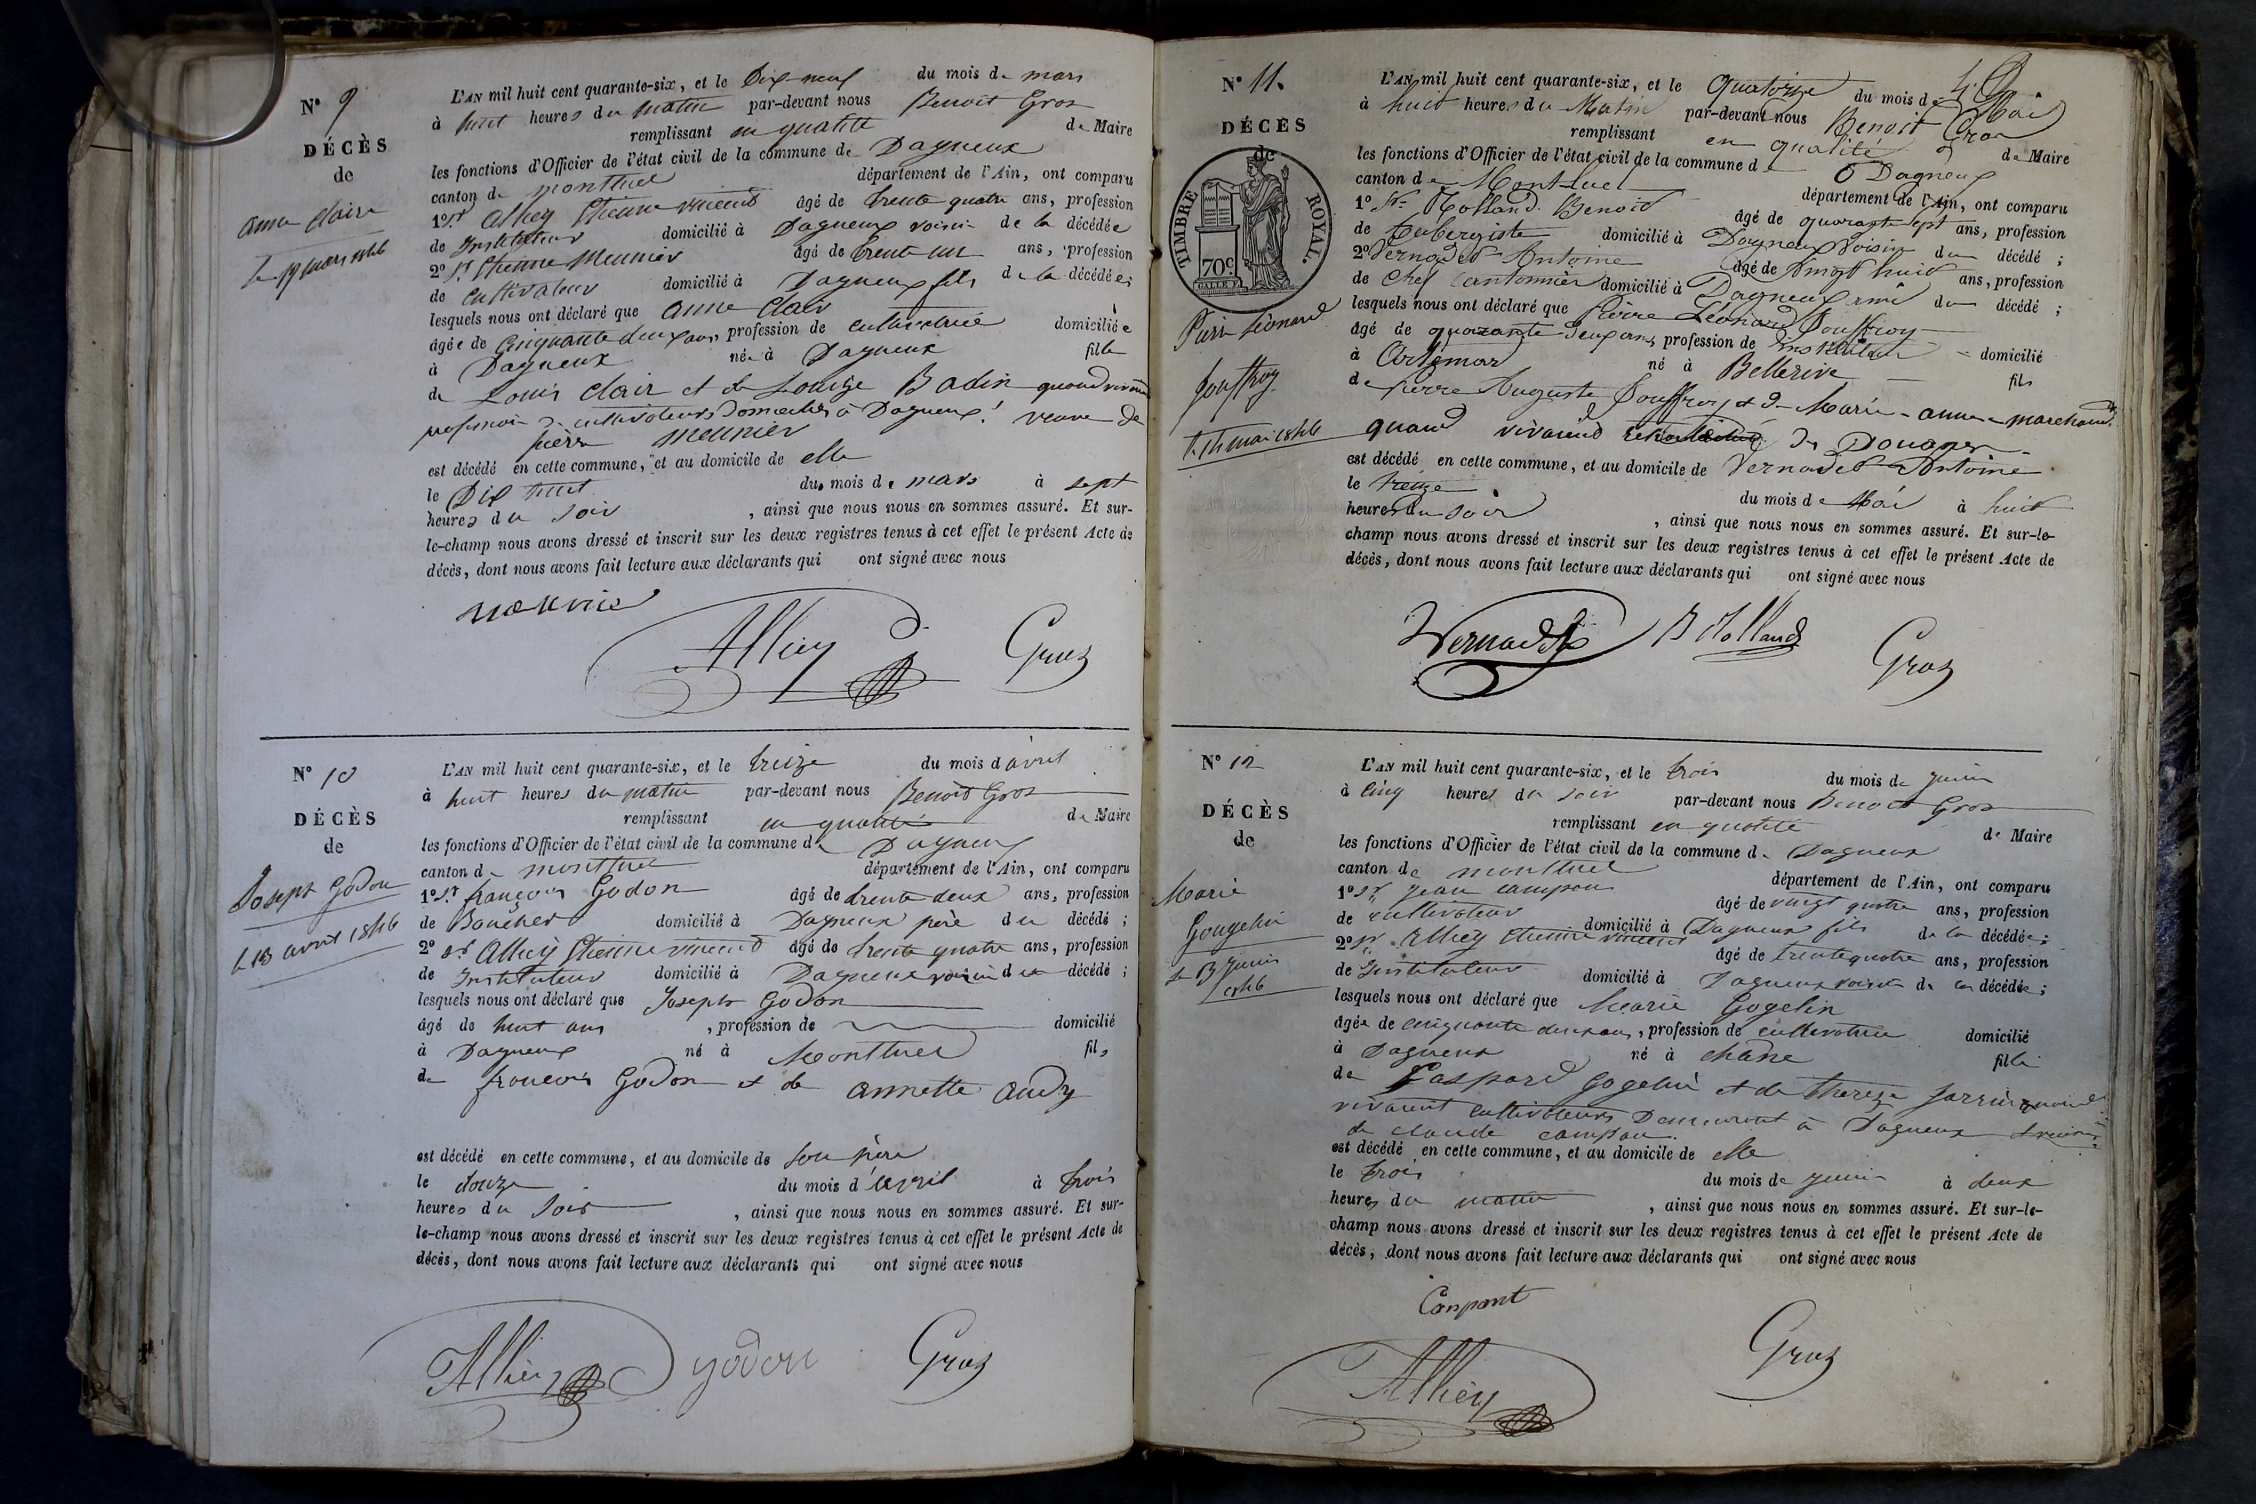 N° 9
DÉCÈS
de
anne claire
le 19 mars 1846
L'AN mil huit cent quarante-six, et le Dix-neuf du mois de mars
à huit heures du matin par-devant nous Benoit Gros
remplissant en qualité de Maire
les fonctions d'Officier de l'état civil de la commune de Dagneux
canton de montluel département de l'Ain, ont comparu
1° Sr Alliey Etienne vincent âgé de trente quatre ans, profession
de Instituteur domicilié à Dagneux voisin de la décédée
2° Sr Etienne Meunier âgé de trente un ans, profession
de Cultivateur domicilié à Dagneux fils de la décédée;
lesquels nous ont déclaré que anne Clair
âgée de Cinquante deux ans, profession de cultivatrice domiciliée
à Dagneux née à Dagneux fille
de Louis Clair et de Louise Badin quand vivaient
profession de cultivateurs domiciliés à Dagneux! veuve de
pierre meunier
est décédé en cette commune, et au domicile de elle
le Dix huit du mois de mars à sept
heures du soir, ainsi que nous nous en sommes assuré. Et sur-
le-champ nous avons dressé et inscrit sur les deux registres tenus à cet effet le présent Acte de
décès, dont nous avons fait lecture aux déclarants qui ont signé avec nous
Alliey Gros
N° 10
DÉCÈS
de
Joseph Godon
le 13 avril 1846
L'AN mil huit cent quarante-six, et le treize du mois d'avril
à huit heures du matin par-devant nous Benoit Gros
remplissant en qualité de Maire
les fonctions d'Officier de l'état civil de la commune de Dagneux
canton de montluel département de l'Ain, ont comparu
1° Sr françois Godon âgé de trente deux ans, profession
de Boucher domicilié à Dagneux père du décédé;
2° Sr Alliey Etienne vincent âgé de trente quatre ans, profession
de Instituteur domicilié à Dagneux voisin du décédé;
lesquels nous ont déclaré que Joseph Godon
âgé de huit ans, profession de domicilié
à Dagneux né à Montluel fils
de françois Godon et de annette audy
est décédé en cette commune, et au domicile de son père
le douze du mois d'avril à trois
heures du soir, ainsi que nous nous en sommes assuré. Et sur-
le-champ nous avons dressé et inscrit sur les deux registres tenus à cet effet le présent Acte de
décès, dont nous avons fait lecture aux déclarants qui ont signé avec nous
Alliey godon Gros
N° 11.
DÉCÈS
de
TIMBRE ROYAL.
70c
Pierre Léonard
Jouffroy
le 14 mai 1846
L'AN mil huit cent quarante-six, et le Quatorze du mois de Mai
à huit heures du Matin par-devant nous Benoit Gros
remplissant en qualité de Maire
les fonctions d'Officier de l'état civil de la commune de Dagneux
canton de Montluel département de l'Ain, ont comparu
1° Sr Rolland Benoit âgé de quarante sept ans, profession
de Aubergiste domicilié à Dagneux voisin du décédé;
2° Vernadet Antoine âgé de vingt huit ans, profession
de Chef Cantonnier domicilié à Dagneux ami du décédé;
lesquels nous ont déclaré que Pierre Léonard Jouffroy
âgé de quarante deux ans, profession de instituteur domicilié
à Artemar né à Bellerive fils
de pierre Auguste Jouffroy et de Marie-anne marchand
quand vivaient des Douanes
est décédé en cette commune, et au domicile de Vernadet Antoine
le treize du mois de Mai à huit
heures du soir, ainsi que nous nous en sommes assuré. Et sur-le-
champ nous avons dressé et inscrit sur les deux registres tenus à cet effet le présent Acte de
décès, dont nous avons fait lecture aux déclarants qui ont signé avec nous
Vernadet B Rolland Gros
N° 12
DÉCÈS
de
Marie
Gougelin
le 3 juin
1846
L'AN mil huit cent quarante-six, et le trois du mois de juin
à cinq heures du soir par-devant nous Benoit Gros
remplissant en qualité de Maire
les fonctions d'Officier de l'état civil de la commune de Dagneux
canton de montluel département de l'Ain, ont comparu
1° Sr jean campan âgé de vingt quatre ans, profession
de cultivateur domicilié à Dagneux fils de la décédée;
2° Sr Alliey Etienne vincent âgé de trente quatre ans, profession
de Instituteur domicilié à Dagneux voisin de la décédée;
lesquels nous ont déclaré que Marie Gogelin
âgée de cinquante deux ans, profession de cultivatrice domicilié
à Dagneux né à chane fille
de Gaspard Gogelin et de thereze Jarrin quand
vivaient cultivateurs Demeurant à Dagneux
de claude campan.
est décédé en cette commune, et au domicile de elle
le trois du mois de juin à deux
heures du matin, ainsi que nous nous en sommes assuré. Et sur-le-
champ nous avons dressé et inscrit sur les deux registres tenus à cet effet le présent Acte de
décès, dont nous avons fait lecture aux déclarants qui ont signé avec nous
Conpant
Alliey Gros